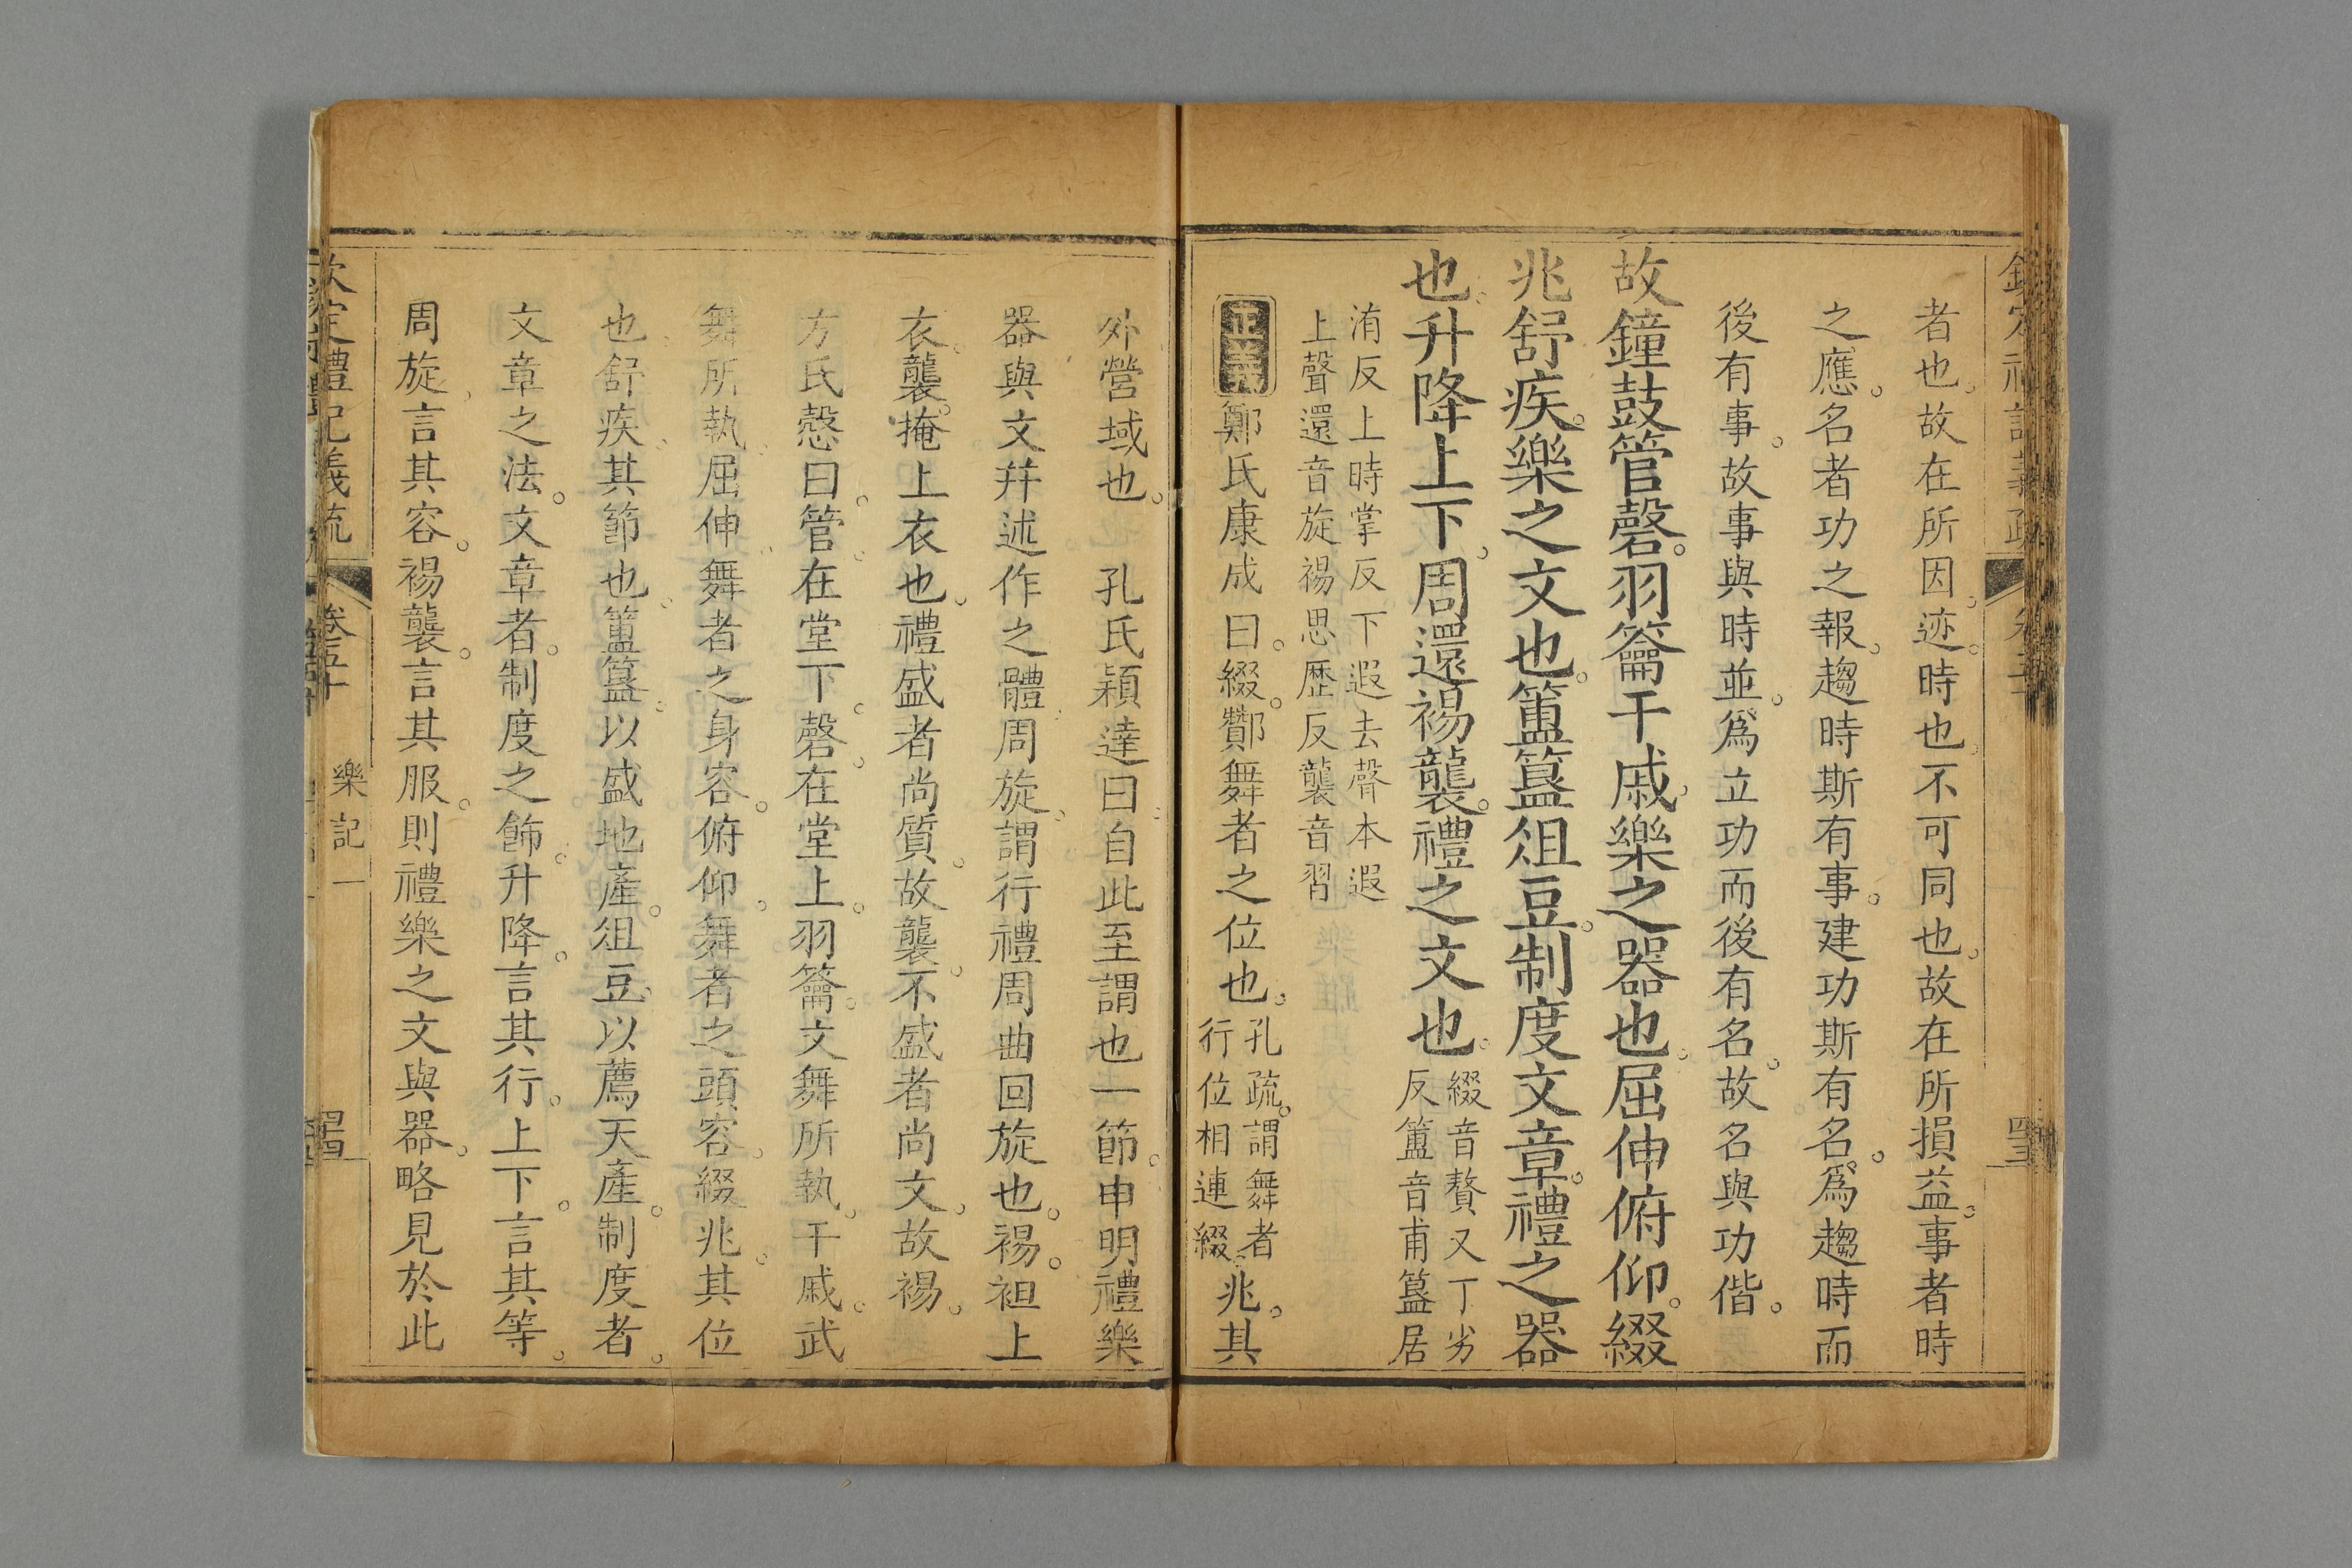 者也。故在所因。迹。時也。不可同也。故在所損益。事者時
之應。名者功之報。趨時斯有事。建功斯有名。爲趨時而
後有事。故事與時並。爲立功而後有名。故名與功偕。
故鐘鼓管磬。羽籥干戚。樂之器也。屈伸俯仰。綴
兆舒疾。樂之文也。簠簋俎豆。制度文章。禮之器
也。升降上下。周還裼襲。禮之文也。
綴音贅又丁劣
反簠音甫簋居
洧反上時掌反下遐去聲本遐
上聲還音旋裼思歷反襲音習
正義 鄭氏康成曰。綴。酇舞者之位也。
孔疏。謂舞者
行位相連綴。
兆。其
外營域也。 孔氏穎達曰自此至謂也一節。申明禮樂
器與文幷述作之體周旋。謂行禮周曲回旋也。裼。袒上
衣。襲。掩上衣也。禮盛者尚質。故襲。不盛者尚文。故裼。
方氏慤曰。管。在堂下。磬。在堂上。羽籥。文舞所執。干戚。武
舞所執。屈伸。舞者之身容。俯仰。舞者之頭容。綴兆。其位
也。舒疾。其節也。簠簋。以盛地產。俎豆。以薦天產。制度者。
文章之法。文章者。制度之飾。升降。言其行。上下。言其等。
周旋。言其容。裼襲。言其服。則禮樂之文與器。略見於此
欽定禮記義疏 卷五十 樂記一